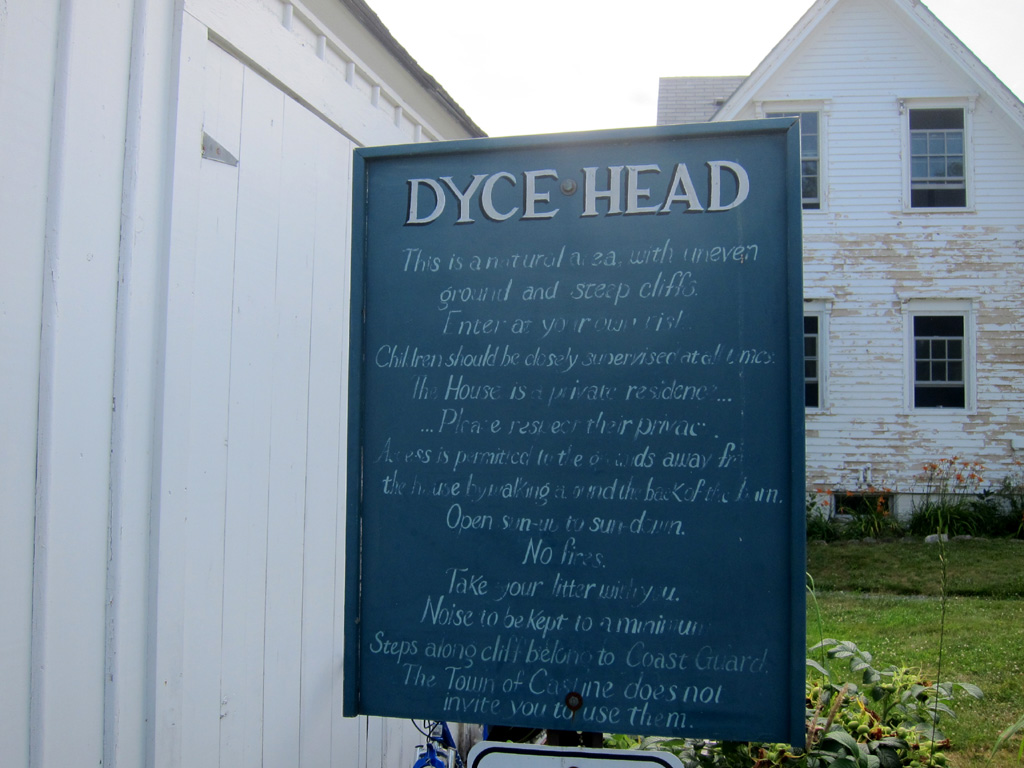 DYCE HEAD
This is a natural area, with uneven
ground and steep cliffs.
Enter at your own risk.
Children should be closely supervised at all times.
The House is a private residence...
...Please respect their privacy.
Access is permitted to the grounds away from
the house by walking around the back of the barn.
Open sun-up to sun-down.
No fires.
Take your litter with you.
Noise to be kept to a minimum
Steps along cliff belong to Coast Guard.
The Town of Castine does not
invite you to use them.